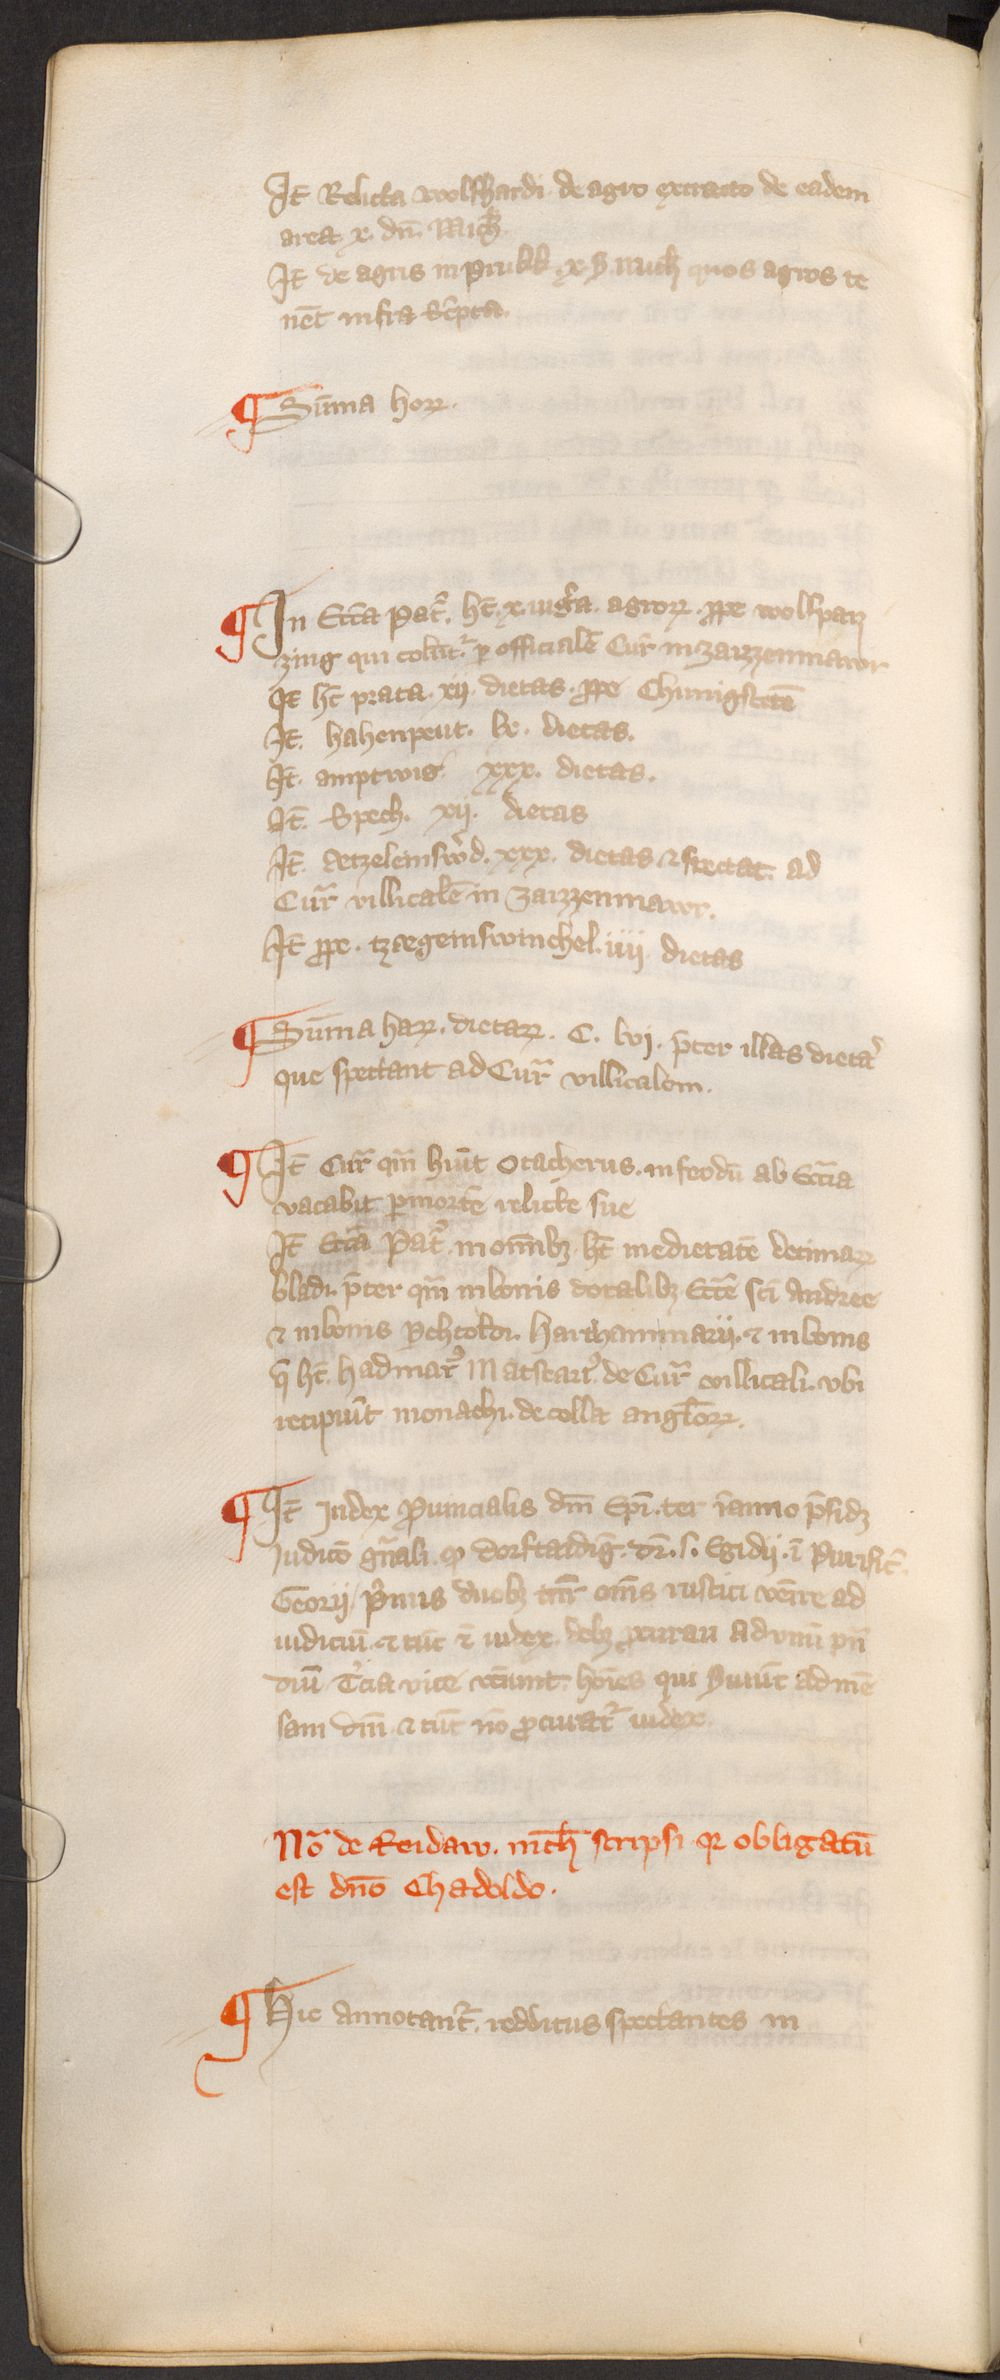 Jt̄ Relicta wolfhardi de agro extracto de eadem
area x. dn̄. Mich̄.
Jt̄ de agris in prukk x. d. mich̄ quos agros te
nēt infra sc̄pta.
¶ Sūma horꝝ.
¶ Jn Ecc̄ia Pat̄. ht̄. x. iug̓a. agrorꝝ. ꝓpe wolfpaꝛ
zing qui colūt᷑. ꝑ officialē Cur̄ in zaizzenmawr
Jt̄ ht̄ prata. xij. dietas. ꝓpe Chunigsteten̄
Jt̄. hahenpeut. lx. dietas.
Jt̄. amptwis. xxx. dietas.
Jt̄. Spech. xij. dietas
Jt̄. detzeleinswd̓. xxx. dietas ⁊ spectat. ad
Cur̄ villicalē in zaizzenmawr.
Jt̄ ꝓpe. tzægeinswinchel. iiij dietas
¶ Sūma harꝝ. dietarꝝ. C. lvj. p̄ter illas dieta᷒
que spectant ad Cur̄ villicalem.
¶ Jt̄ Cur̄ qm̄ hūit Otacherus. in feodū ab Ecc̄ia
vacabit ꝑ mortē relicte sue
Jt̄ Ecc̄ia Pat̄. in om̄ibꝫ. ht̄ medietatē decimarꝝ
bladi. p̄ter qm̄ in bonis dotalibꝫ Ecc̄e sc̄i Andree
⁊ in bonis Pehtoldi. harthammarii. ⁊ in bonis
q̄ ht̄. hadmarꝰ Matstarꝰ de Cur̄ villicali. vbi
recipiūt monachi. de cella angl̄orꝝ.
¶ Jt̄ Judex ꝓuincialis dn̄i Ep̄i. ter ī anno p̄sidꝫ
Judicō gn̄ali. qd̓ dorftaidīg. dr̄. s. Egidij. ī Purific̄.
Georij / p̓mis duobꝫ tn̄r om̄s rustici venīre ad
iudiciū ⁊ tūc ē iudex. debꝫ ꝓcurari ad vnū pn̄
diū T̓cia vice veniunt. hoīes qui ꝑtinūt ad mē
sam dn̄i. ⁊ tūc nō ꝓcurat᷑ iudex.
Nō de Reidaw. nich̄ scripsi qꝛ obligatū
est dn̄o Chadoldo.
¶ Hic annotant᷑. redditus spectantes in